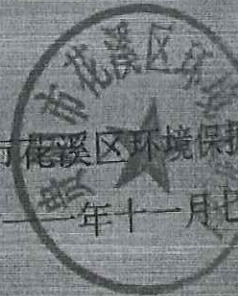 市花溪区环境保
市花溪区环境保
一一年十一月七